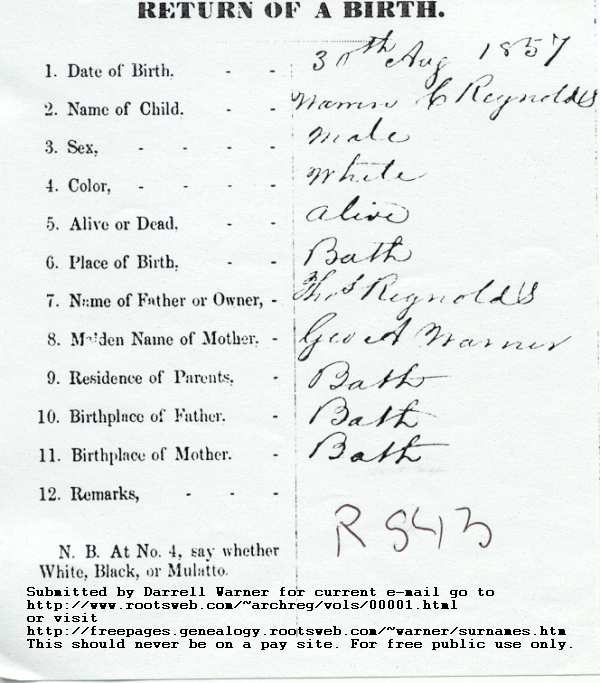 RETURN OF A BIRTH.
1. Date of Birth. - - 30th Aug 1857
2. Name of Child. - - Warren C Reynolds
3. Sex, - - - - Male
4. Color, - - - - White
5. Alive or Dead, - - alive
6. Place of Birth, - - Bath
7. Name of Father or Owner, - Thos Reynolds
8. Maiden Name of Mother, - Geo A Warner
9. Residence of Parents, - Bath
10. Birthplace of Father. - Bath
11. Birthplace of Mother. - Bath
12. Remarks, - - -
R 543
N. B. At No. 4, say whether
White, Black, or Mulatto.
Submitted by Darrell Warner for current e-mail go to
http://www.rootsweb.com/~archreg/vols/00001.html
or visit
http://freepages.genealogy.rootsweb.com/~warner/surnames.htm
This should never be on a pay site. For free public use only.